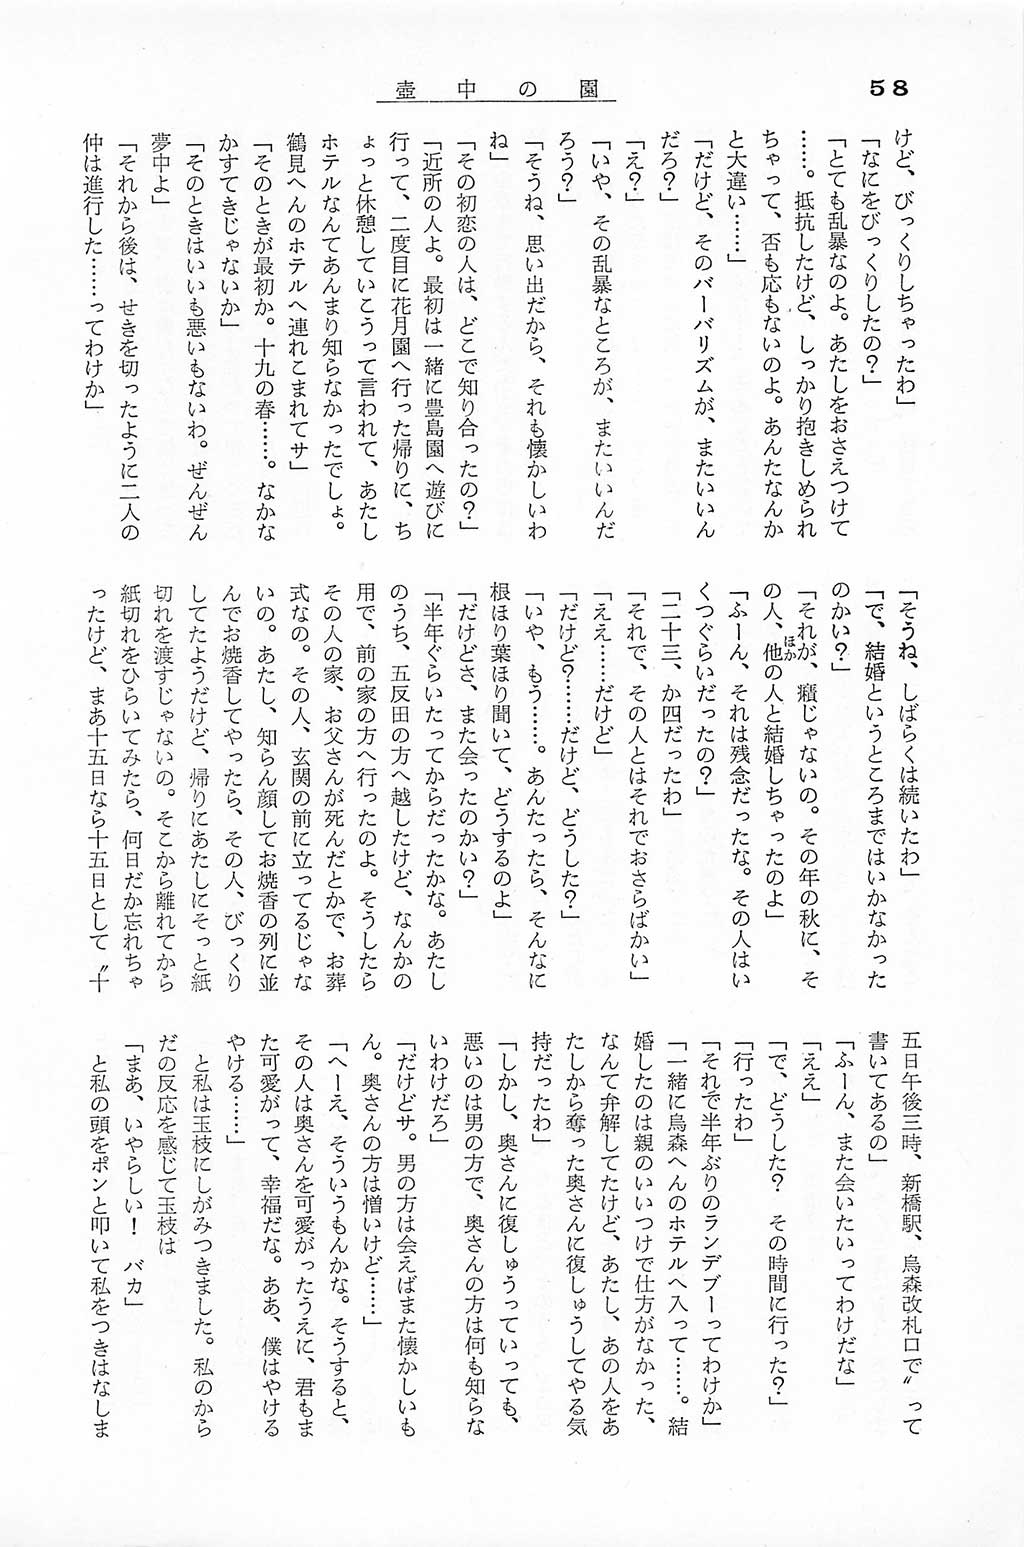 58
壺中の園
けど、びっくりしちゃったわ」
「なにをびっくりしたの？」
「とても乱暴なのよ。あたしをおさえつけて
……。抵抗したけど、しっかり抱きしめられ
ちゃって、否も応もないのよ。あんたなんか
と大違い……」
「だけど、そのバーバリズムが、またいいん
だろ？」
「え？」
「いや、その乱暴なところが、またいいんだ
ろう？」
「そうね、思い出だから、それも懐かしいわ
ね」
「その初恋の人は、どこで知り合ったの？」
「近所の人よ。最初は一緒に豊島園へ遊びに
行って、二度目に花月園へ行った帰りに、ち
ょっと休憩していこうって言われて、あたし
ホテルなんてあんまり知らなかったでしょ。
鶴見へんのホテルへ連れこまれてサ」
「そのときが最初か。十九の春……。なかな
かすてきじゃないか」
「そのときはいいも悪いもないわ。ぜんぜん
夢中よ」
「それから後は、せきを切ったように二人の
仲は進行した……ってわけか」
「そうね、しばらくは続いたわ」
「で、結婚というところまではいかなかった
のかい？」
「それが、癪じゃないの。その年の秋に、そ
の人、他ほかの人と結婚しちゃったのよ」
「ふーん、それは残念だったな。その人はい
くつぐらいだったの？」
「二十三、か四だったわ」
「それで、その人とはそれでおさらばかい」
「ええ……だけど」
「だけど？……だけど、どうした？」
「いや、もう……。あんたったら、そんなに
根ほり葉ほり聞いて、どうするのよ」
「だけどさ、また会ったのかい？」
「半年ぐらいたってからだったかな。あたし
のうち、五反田の方へ越したけど、なんかの
用で、前の家の方へ行ったのよ。そうしたら
その人の家、お父さんが死んだとかで、お葬
式なの。その人、玄関の前に立ってるじゃな
いの。あたし、知らん顔してお焼香の列に並
んでお焼香してやったら、その人、びっくり
してたようだけど、帰りにあたしにそっと紙
切れを渡すじゃないの。そこから離れてから
紙切れをひらいてみたら、何日だか忘れちゃ
ったけど、まあ十五日なら十五日として〝十
五日午後三時、新橋駅、烏森改札口で〟って
書いてあるの」
「ふーん、また会いたいってわけだな」
「ええ」
「で、どうした？　その時間に行った？」
「行ったわ」
「それで半年ぶりのランデブーってわけか」
「一緒に烏森へんのホテルへ入って……。結
婚したのは親のいいつけで仕方がなかった、
なんて弁解してたけど、あたし、あの人をあ
たしから奪った奥さんに復しゅうしてやる気
持だったわ」
「しかし、奥さんに復しゅうっていっても、
悪いのは男の方で、奥さんの方は何も知らな
いわけだろ」
「だけどサ。男の方は会えばまた懐かしいも
ん。奥さんの方は憎いけど……」
「へーえ、そういうもんかな。そうすると、
その人は奥さんを可愛がったうえに、君もま
た可愛がって、幸福だな。ああ、僕はやける
やける……」
　と私は玉枝にしがみつきました。私のから
だの反応を感じて玉枝は
「まあ、いやらしい！　バカ」
　と私の頭をポンと叩いて私をつきはなしま